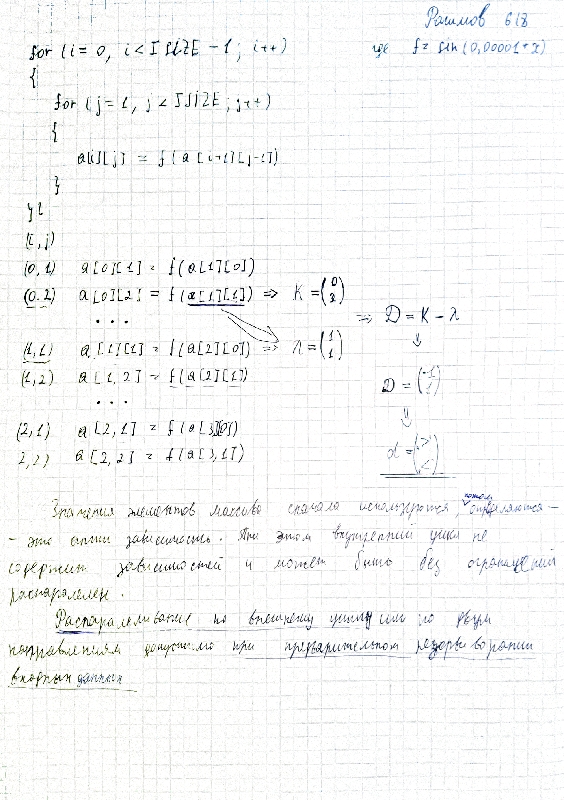 Рагимов 618
for (i=0, i<ISIZE-1; i++)
где f= sin(0,00001*x)
{
for (j=1, j<ISIZE; j++)
{
a[i][j] = f(a[i+1][j-1])
}
}
(i, j)
(0, 1) a[0][1] = f(a[1][0])
(0.2) a[0][2] = f(a[1][1]) ⇒ K = (0 2) ⇒ D = K - λ
...
(1,1) a[1][1] = f(a[2][0]) ⇒ λ = (1 1)
(1,2) a[1,2] = f(a[2][1]) D = (-1 1)
...
(2,1) a[2,1] = f(a[3][0])
2,2) a[2,2] = f(a[3,1]) d = (> <)
Значения элементов массива сначала используются, потом определяются -
- это анти зависимость. При этом внутренний цикл не
содержит зависимостей и может быть без ограничений
распараллелен.
Распаралеливание по внешнему циклу или по двум
направлениям допустимо при предварительном резервировании
входных данных